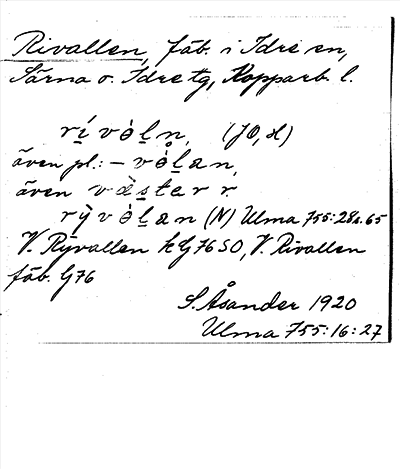 Rivallen, fäb. i Idre sn,
Särna o. Idre tg, Kopparb. l.
rívòḷn, (JO, H)
även pl.: - vòḷan,
även västər r.
rỳvòḷan (N) Ulma 755:28 s. 65
V. Ryvallen k G76 SO, V. Rivallen
fäb. G76
S. Åsander 1920
Ulma 755:16:27